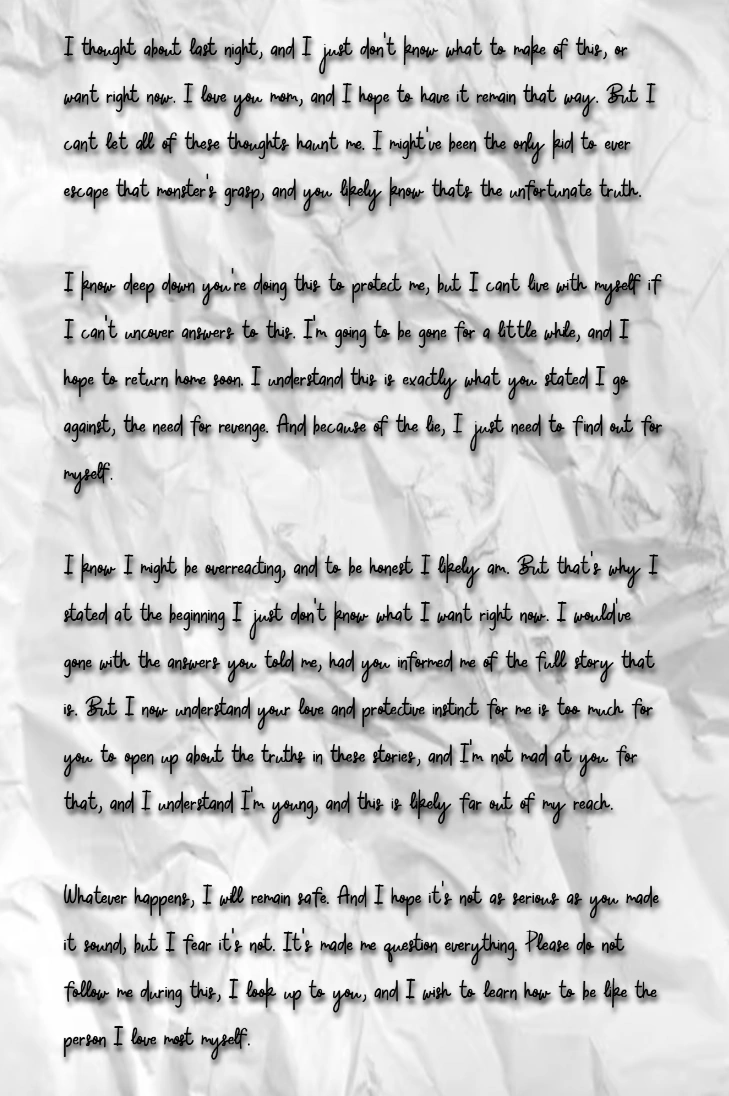 I thought about last night, and I just don't know what to make of this, or
want right now. I love you mom, and I hope to have it remain that way. But I
cant let all of these thoughts haunt me. I might've been the only kid to ever
escape that monster's grasp, and you likely know thats the unfortunate truth.
I know deep down you're doing this to protect me, but I cant live with myself if
I can't uncover answers to this. I'm going to be gone for a little while, and I
hope to return home soon. I understand this is exactly what you stated I go
against, the need for revenge. And because of the lie, I just need to find out for
myself.
I know I might be overreacting, and to be honest I likely am. But that's why I
stated at the beginning I just don't know what I want right now. I would've
gone with the answers you told me, had you informed me of the full story that
is. But I now understand your love and protective instinct for me is too much for
you to open up about the truths in these stories, and I'm not mad at you for
that, and I understand I'm young, and this is likely far out of my reach.
Whatever happens, I will remain safe. And I hope it's not as serious as you made
it sound, but I fear it's not. It's made me question everything. Please do not
follow me during this, I look up to you, and I wish to learn how to be like the
person I love most myself.